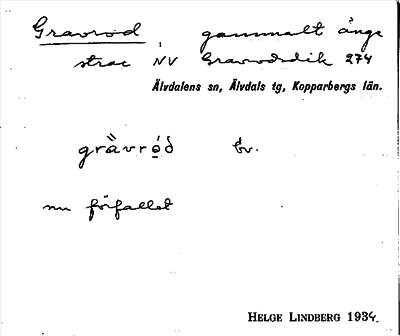 Gravrod, gammalt änge
strax NV Gravrodsdik 274
Älvdalens sn, Älvdals tg, Kopparbergs län.
grävród öv.
nu förfallet
HELGE LINDBERG 1934.